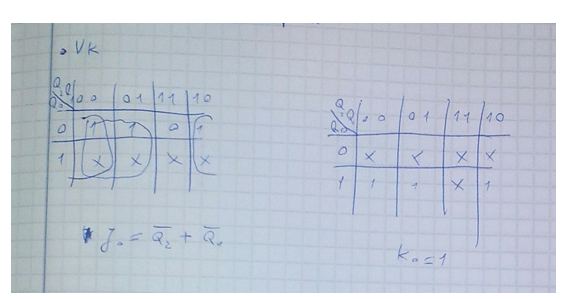 • VK
Q₂Q₁ 00 01 11 10
Q₀
0 1 1 0 1
1 X X X X
J₀ = Q̅₂ + Q̅₁
Q₂Q₁ 00 01 11 10
Q₀
0 X X X X
1 1 1 X 1
K₀ = 1